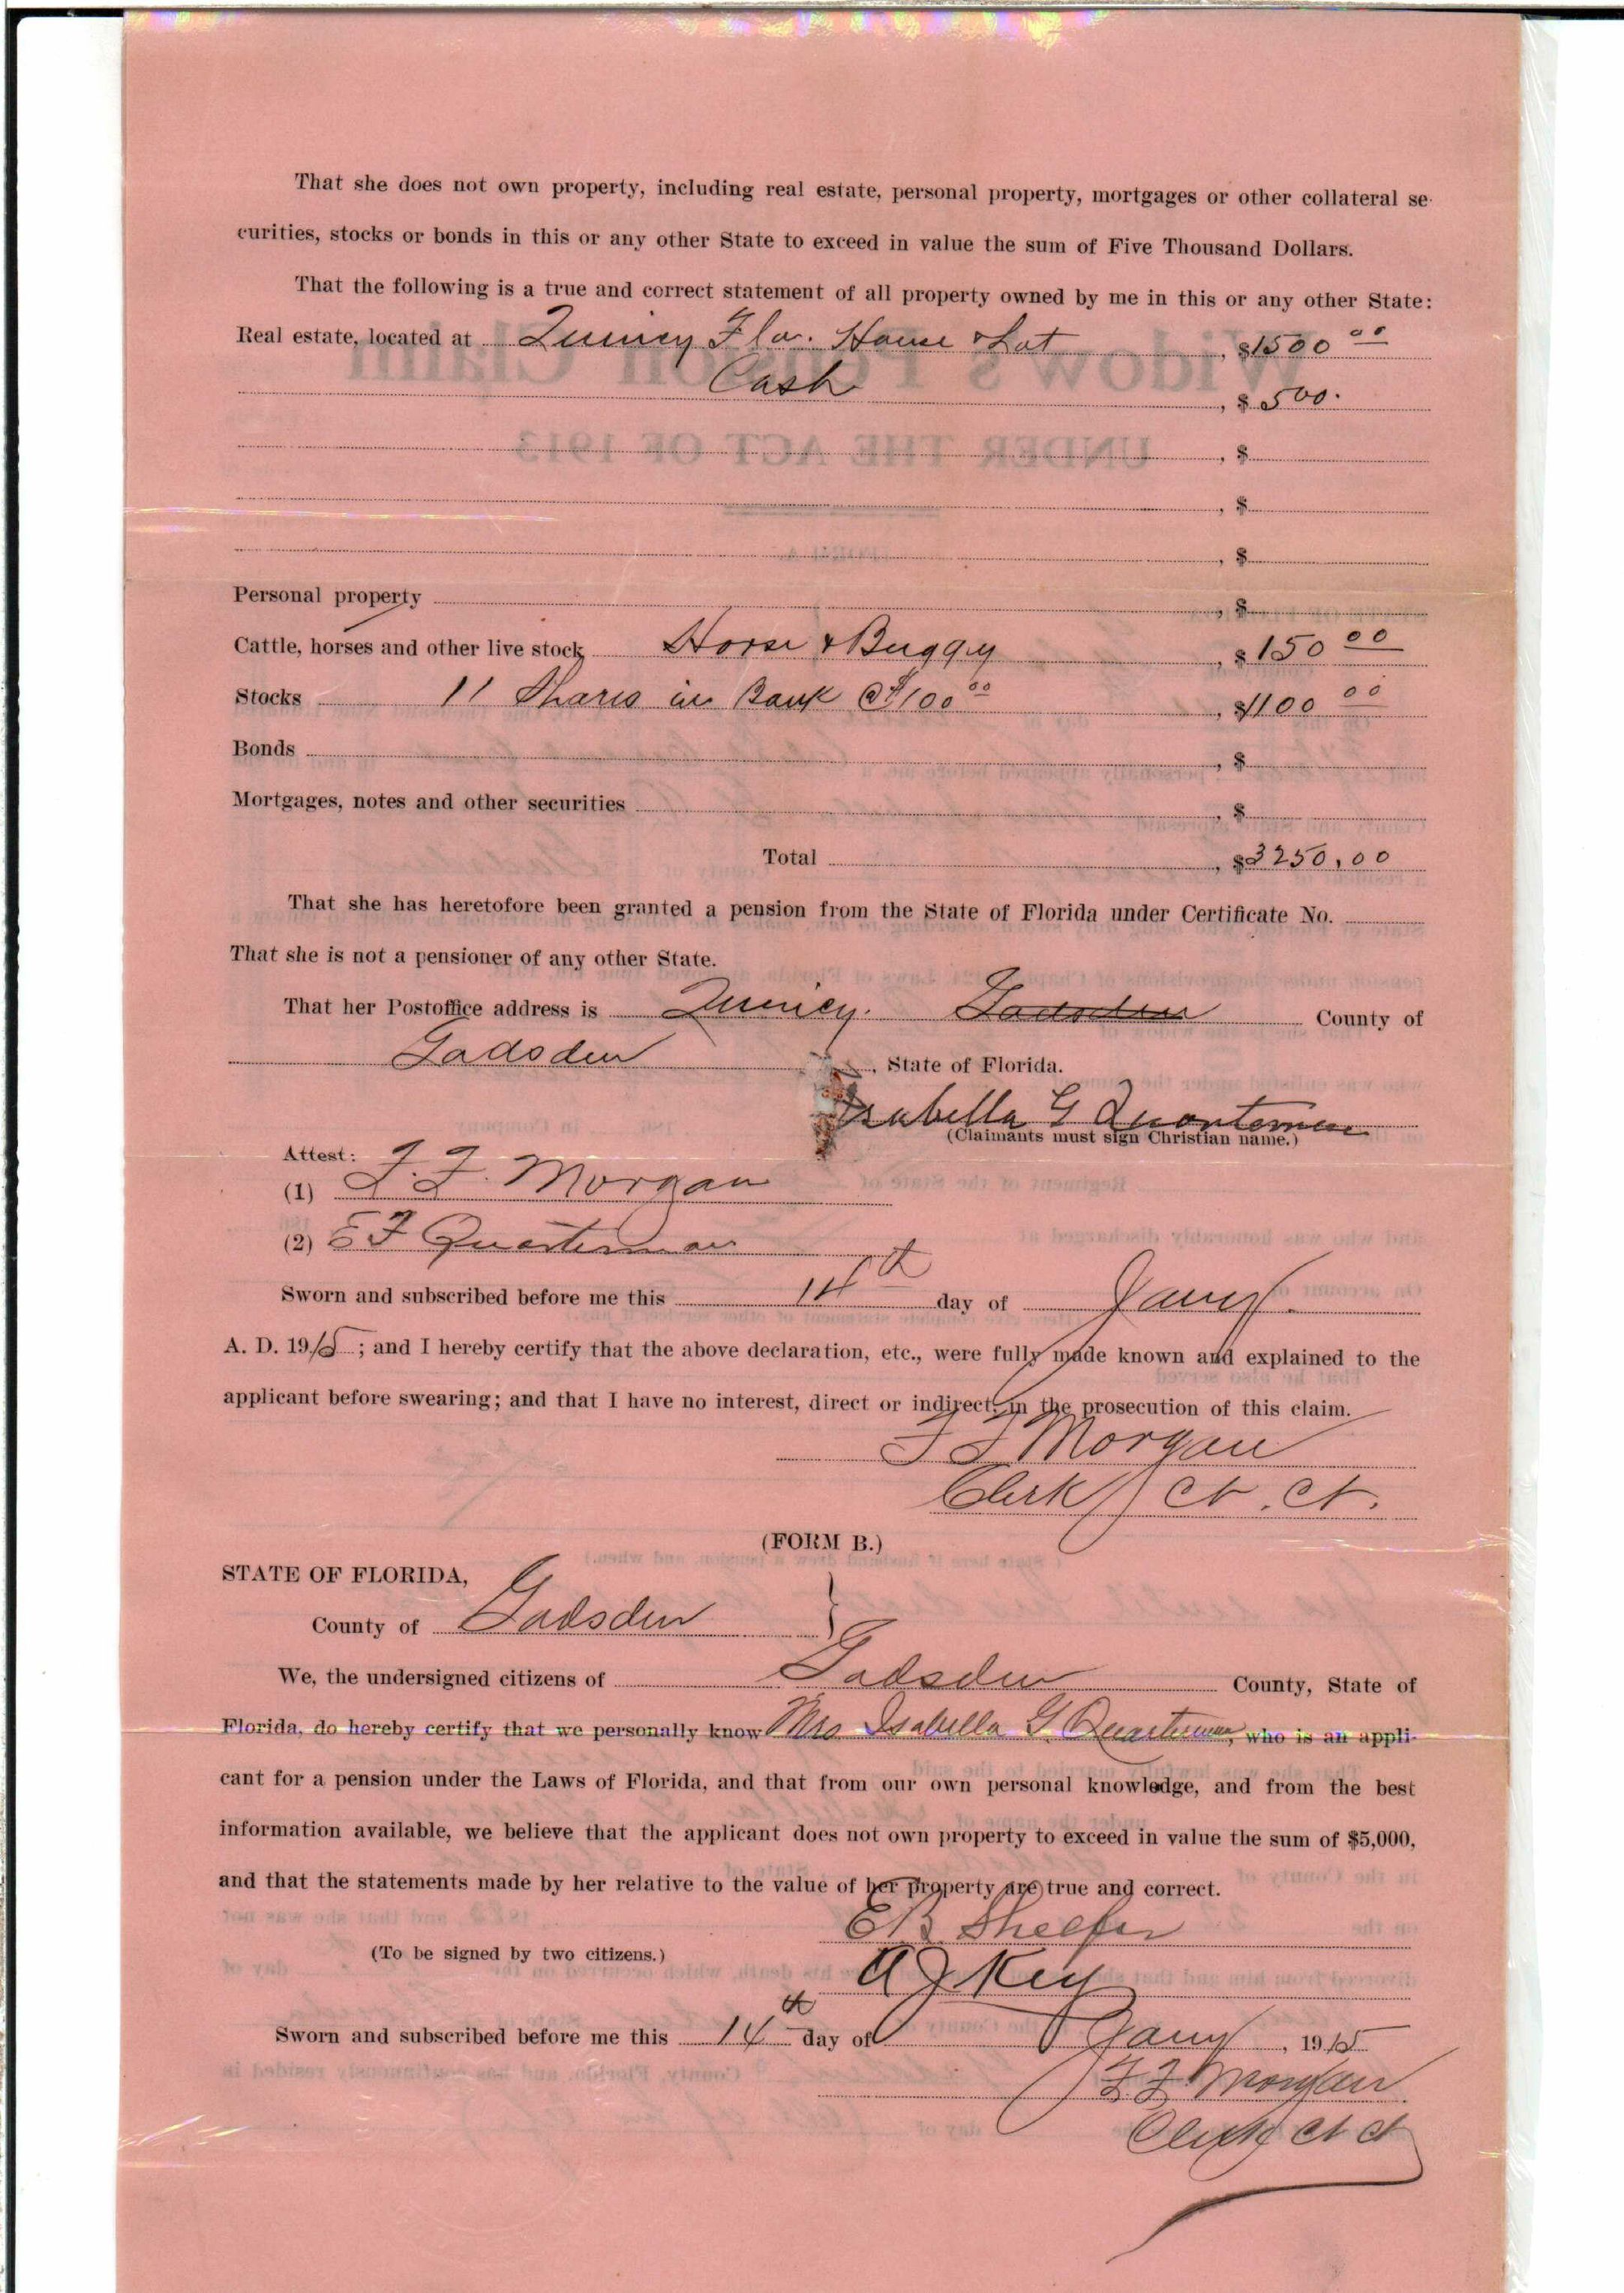 That she does not own property, including real estate, personal property, mortgages or other collateral se-
curities, stocks or bonds in this or any other State to exceed in value the sum of Five Thousand Dollars.
That the following is a true and correct statement of all property owned by me in this or any other State:
Real estate, located at Quincy Fla. House & Lot, $1500 00
Cash, $ 500.
, $
, $
, $
Personal property, $
Cattle, horses and other live stock Horse & Buggy, $ 150 00
Stocks 11 Shares in Bank @ $100 00, $1100 00
Bonds, $
Mortgages, notes and other securities, $
Total, $3250,00
That she has heretofore been granted a pension from the State of Florida under Certificate No.
That she is not a pensioner of any other State.
That her Postoffice address is Quincy. Gadsden County of
Gadsden, State of Florida.
Isabella G Quarterman
(Claimants must sign Christian name.)
Attest:
(1) F. F. Morgan
(2) E F Quarterman
Sworn and subscribed before me this 14th day of Jany
A. D. 1915; and I hereby certify that the above declaration, etc., were fully made known and explained to the
applicant before swearing; and that I have no interest, direct or indirect, in the prosecution of this claim.
F F Morgan
Clerk Ct. Ct.
(FORM B.)
STATE OF FLORIDA,
County of Gadsden }
We, the undersigned citizens of Gadsden County, State of
Florida, do hereby certify that we personally know Mrs Isabella G Quarterman, who is an appli-
cant for a pension under the Laws of Florida, and that from our own personal knowledge, and from the best
information available, we believe that the applicant does not own property to exceed in value the sum of $5,000,
and that the statements made by her relative to the value of her property are true and correct.
E B Shelfer
(To be signed by two citizens.)
A J Key
Sworn and subscribed before me this 14th day of Jany, 1915
F F Morgan
Clerk Ct Ct